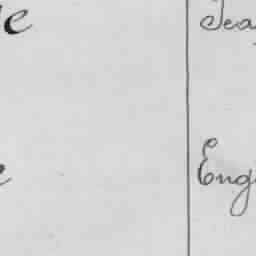 e Tea
e Eng